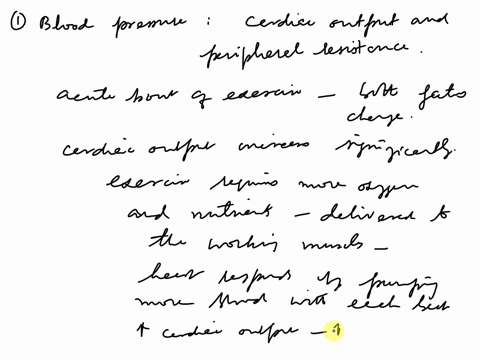 ① Blood pressure : Cardiac output and
peripheral resistance.
acute bout of exercise – both
change.
cardiac output increases significantly.
exercise requires more oxygen
and nutrients – delivered to
the working muscles –
heart responds by pumping
more blood with each beat
↑ cardiac output – ↑